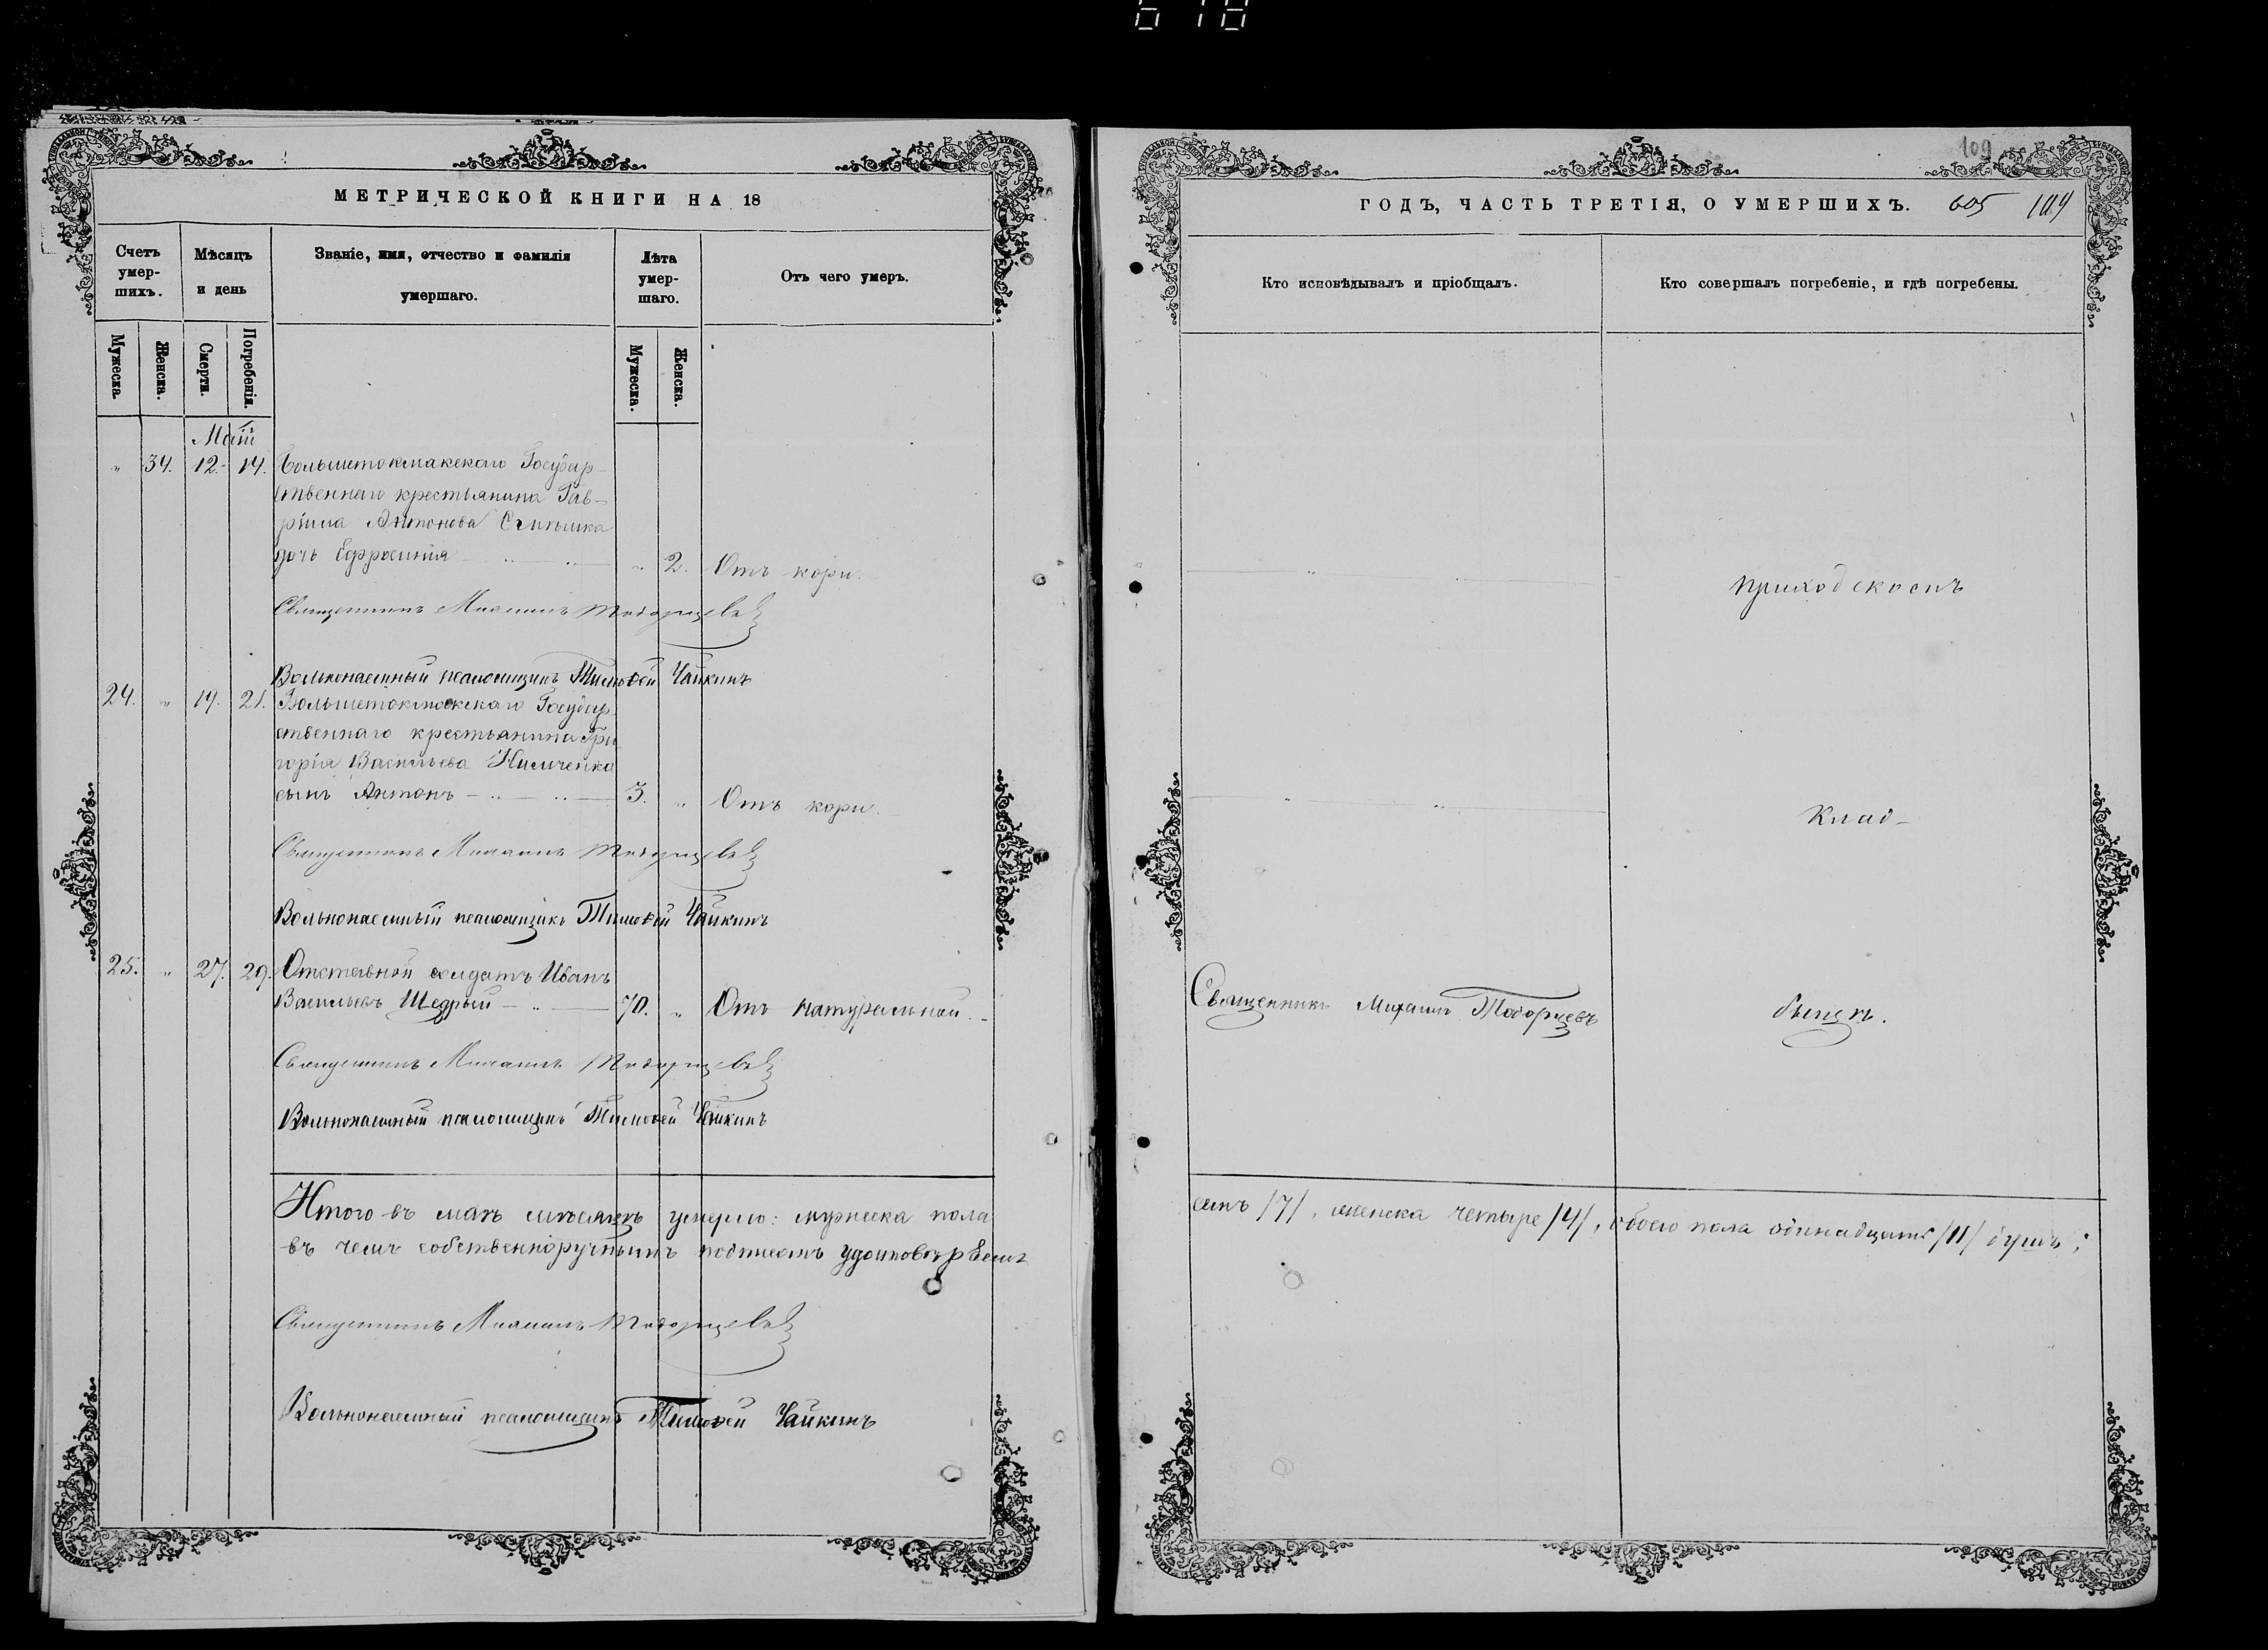 618
МЕТРИЧЕСКОЙ КНИГИ НА 18
Счетъ умер-шихъ.
Мѣсяцъ и день
Званіе, имя, отчество и фамилія умершаго.
Лѣта умер-шаго.
Отъ чего умеръ.
Мужеска.
Женска.
Смерти.
Погребенія.
Мужеска.
Женска.
Май
" 34. 12. 14. Большетокмакскаго Государ-
ственнаго крестьянина Гав-
ріила Антонова
дочь Ефросинія " 2. Отъ кори.
Священникъ Михаилъ Тодорцевъ
Вольнонаемный псаломщикъ Тимоѳей Чайкинъ
24. " 19. 21. Большетокмакскаго Государ-
ственнаго крестьянина Гри
горія Васильева Нимченка
сынъ Антонъ 3. " Отъ кори.
Священникъ Михаилъ Тодорцевъ
Вольнонаемный псаломщикъ Тимоѳей Чайкинъ
25. " 27. 29. Отставной солдатъ Иванъ
Васильевъ Щедрый 70. " Отъ натуральной.
Священникъ Михаилъ Тодорцевъ
Вольнонаемный псаломщикъ Тимоѳей Чайкинъ
Итого въ маѣ мѣсяцѣ умерло: мужеска пола
въ чемъ собственноручнымъ подписомъ удостовѣряемъ
Священникъ Михаилъ Тодорцевъ
Вольнонаемный псаломщикъ Тимоѳей Чайкинъ
109
ГОДЪ, ЧАСТЬ ТРЕТІЯ, О УМЕРШИХЪ. 605 109
Кто исповѣдывалъ и пріобщалъ.
Кто совершалъ погребеніе, и гдѣ погребены.
Приходскомъ
Клад-
Священникъ Михаилъ Тодорцевъ
бищѣ.
семь /7/, женска четыре /4/, обоего пола одинадцать /11/ душъ;